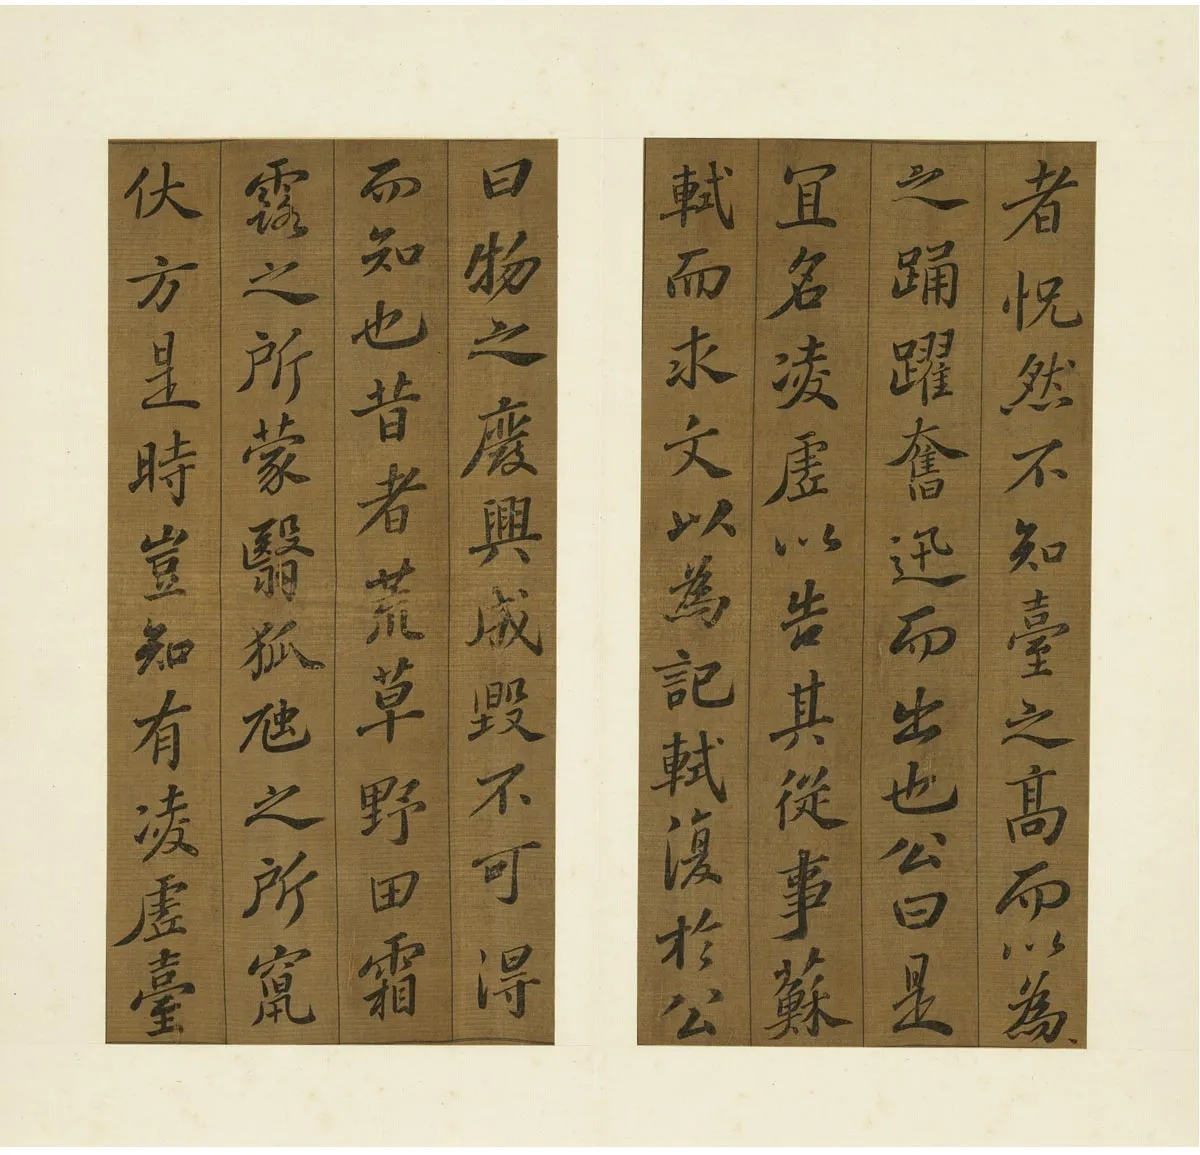 者怳然不知臺之髙而以為
之踊躍奮迅而出也公曰是
宜名凌虛以告其從事蘇
軾而求文以為記軾復於公
曰物之廢興成毀不可得
而知也昔者荒草野田霜
露之所蒙翳狐虺之所竄
伏方是時豈知有凌虛臺